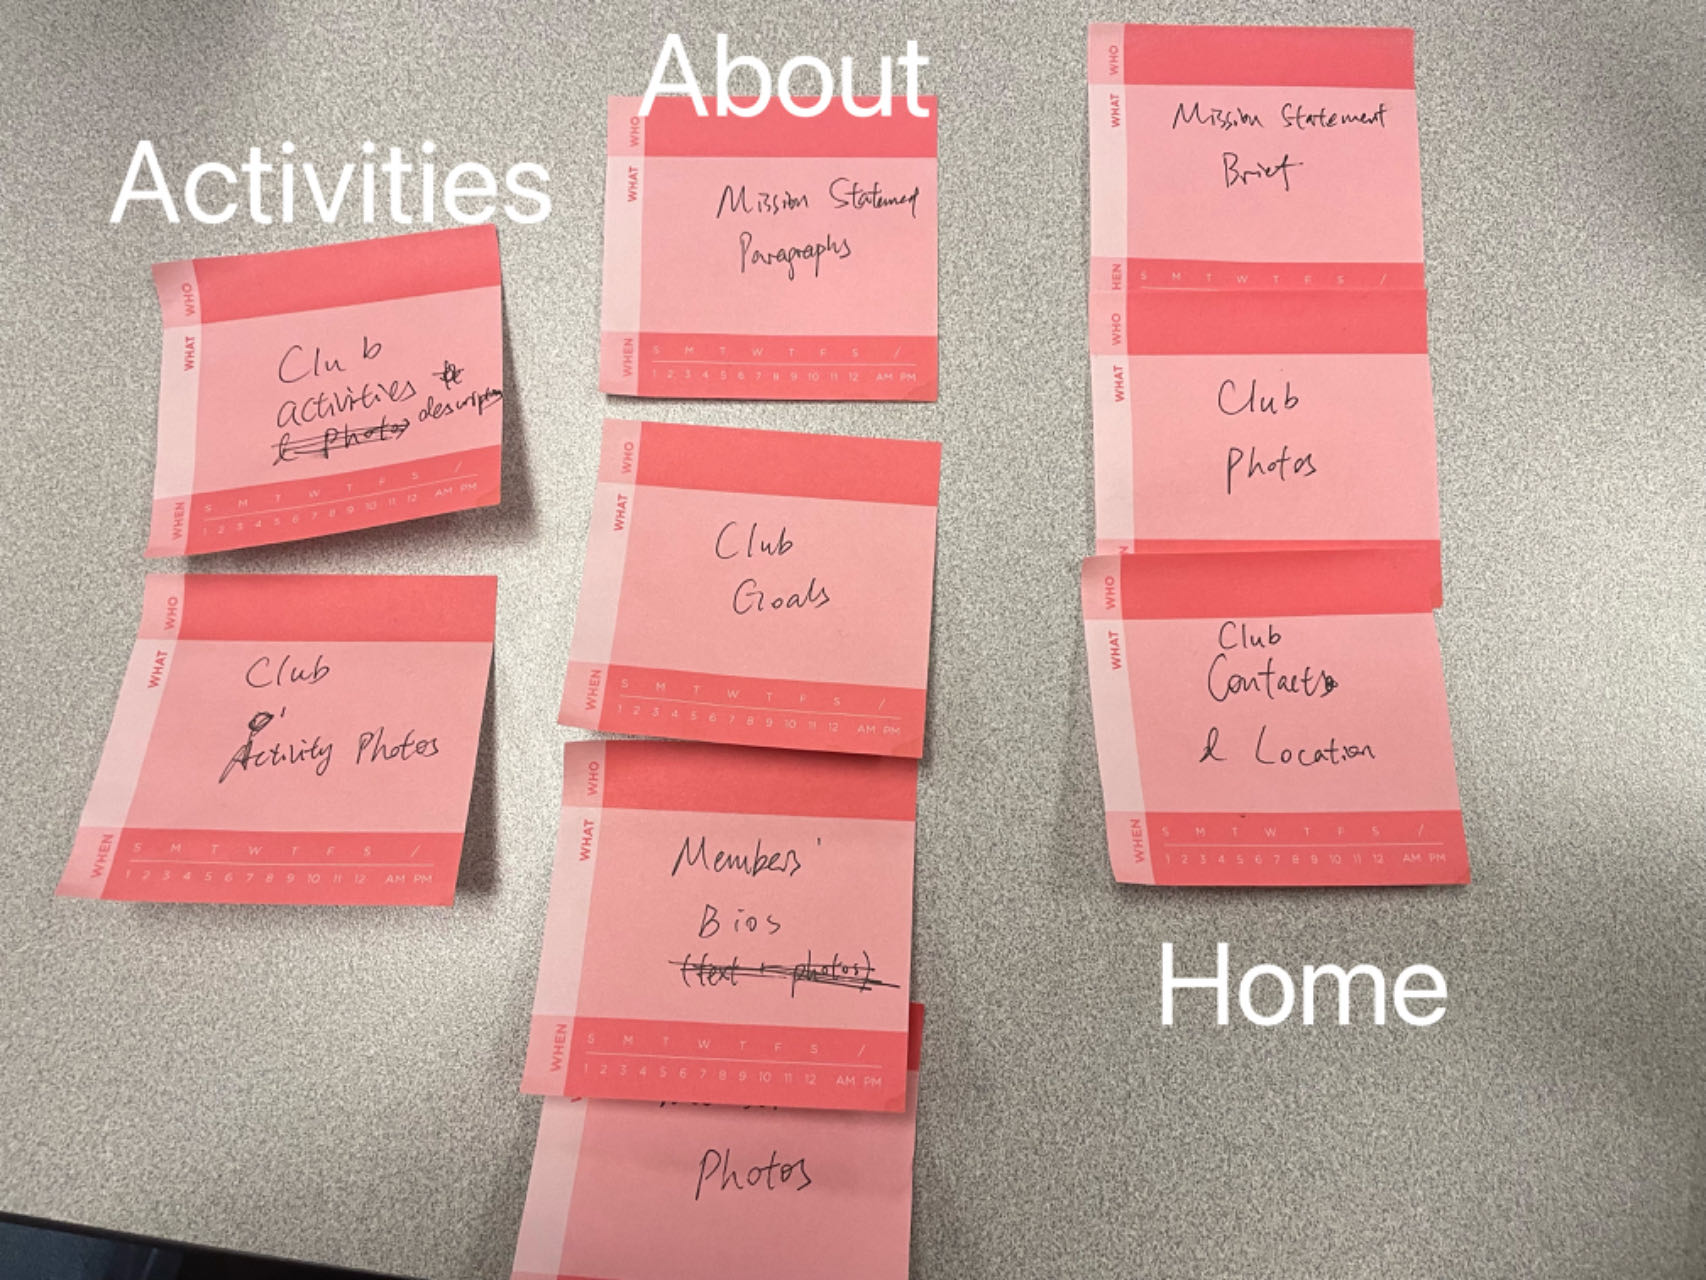 Activities
WHO
WHAT
Club
activities
& Photos
WHEN
S M T W T F S /
1 2 3 4 5 6 7 8 9 10 11 12 AM PM
WHO
WHAT
Club
Activity Photos
WHEN
S M T W T F S /
1 2 3 4 5 6 7 8 9 10 11 12 AM PM
About
WHO
WHAT
Mission
Paragraphs
WHEN
S M T W T F S /
1 2 3 4 5 6 7 8 9 10 11 12 AM PM
WHO
WHAT
Club
Goals
WHEN
S M T W T F S /
1 2 3 4 5 6 7 8 9 10 11 12 AM PM
WHO
WHAT
Members'
Bios
(text + photos)
WHEN
S M T W T F S /
1 2 3 4 5 6 7 8 9 10 11 12 AM PM
Photos
WHO
WHAT
Mission Statement
Brief
HEN
S M T W T F S /
WHO
WHAT
Club
Photos
N
WHO
WHAT
Club
Contacts
& Location
WHEN
S M T W T F S /
1 2 3 4 5 6 7 8 9 10 11 12 AM PM
Home